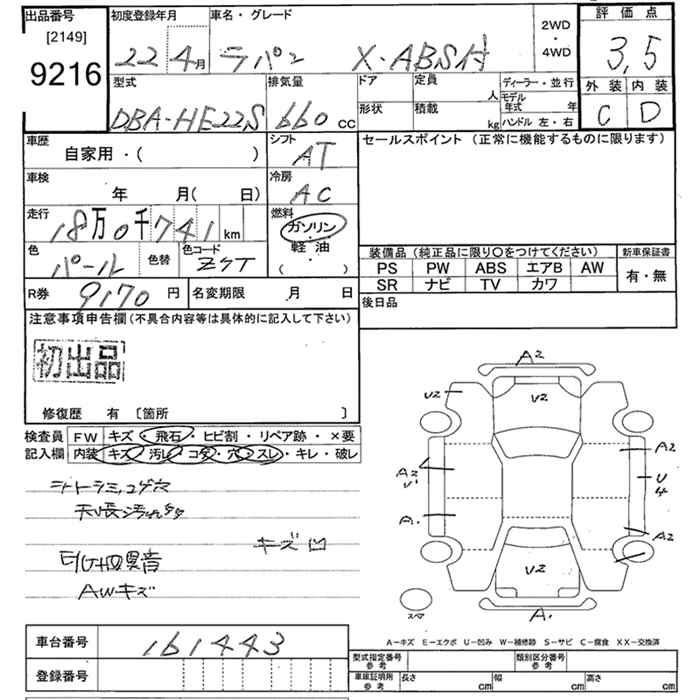 出品番号
[2149]
9216
初度登録年月
22 4月
車名・グレード
ラパン X・ABS付
2WD
・
4WD
評価点
3,5
外装 内装
C D
型式
DBA-HE22S
排気量
660 cc
ドア
定員 人
形状
積載 kg
ディーラー・並行
モデル年式 年
ハンドル 左・右
車歴
自家用・( )
シフト
AT
セールスポイント (正常に機能するものに限ります)
車検
年 月( 日)
冷房
AC
走行
18万0千741km
燃料
ガソリン
・
軽・油
( )
色
パール
色替
色コード
Z7T
装備品 (純品に限り○をつけてください)
PS PW ABS エアB AW
SR ナビ TV カワ
新車保証書
有・無
R券 9170 円
名変期限 月 日
後日品
注意事項申告欄 (不具合内容等は具体的に記入して下さい)
初出品
修復歴 有 〔箇所 〕
検査員記入欄
FW キズ・飛石・ヒビ割・リペア跡・×要
内装 キズ・汚レ・コゲ・穴・スレ・キレ・破レ
シートシミ、コゲ穴
キズ凹
AWキズ
A2
V2
V2
A2
A2
V1
V4
A1
A2
V2
スペア
A1
A-キズ E-エクボ U-凹み W-補修跡 S-サビ C-腐食 XX-交換済
車台番号 161443
登録番号
型式指定番号 参考
類別区分番号 参考
車車証項用 参考
長さ cm
幅 cm
高さ cm